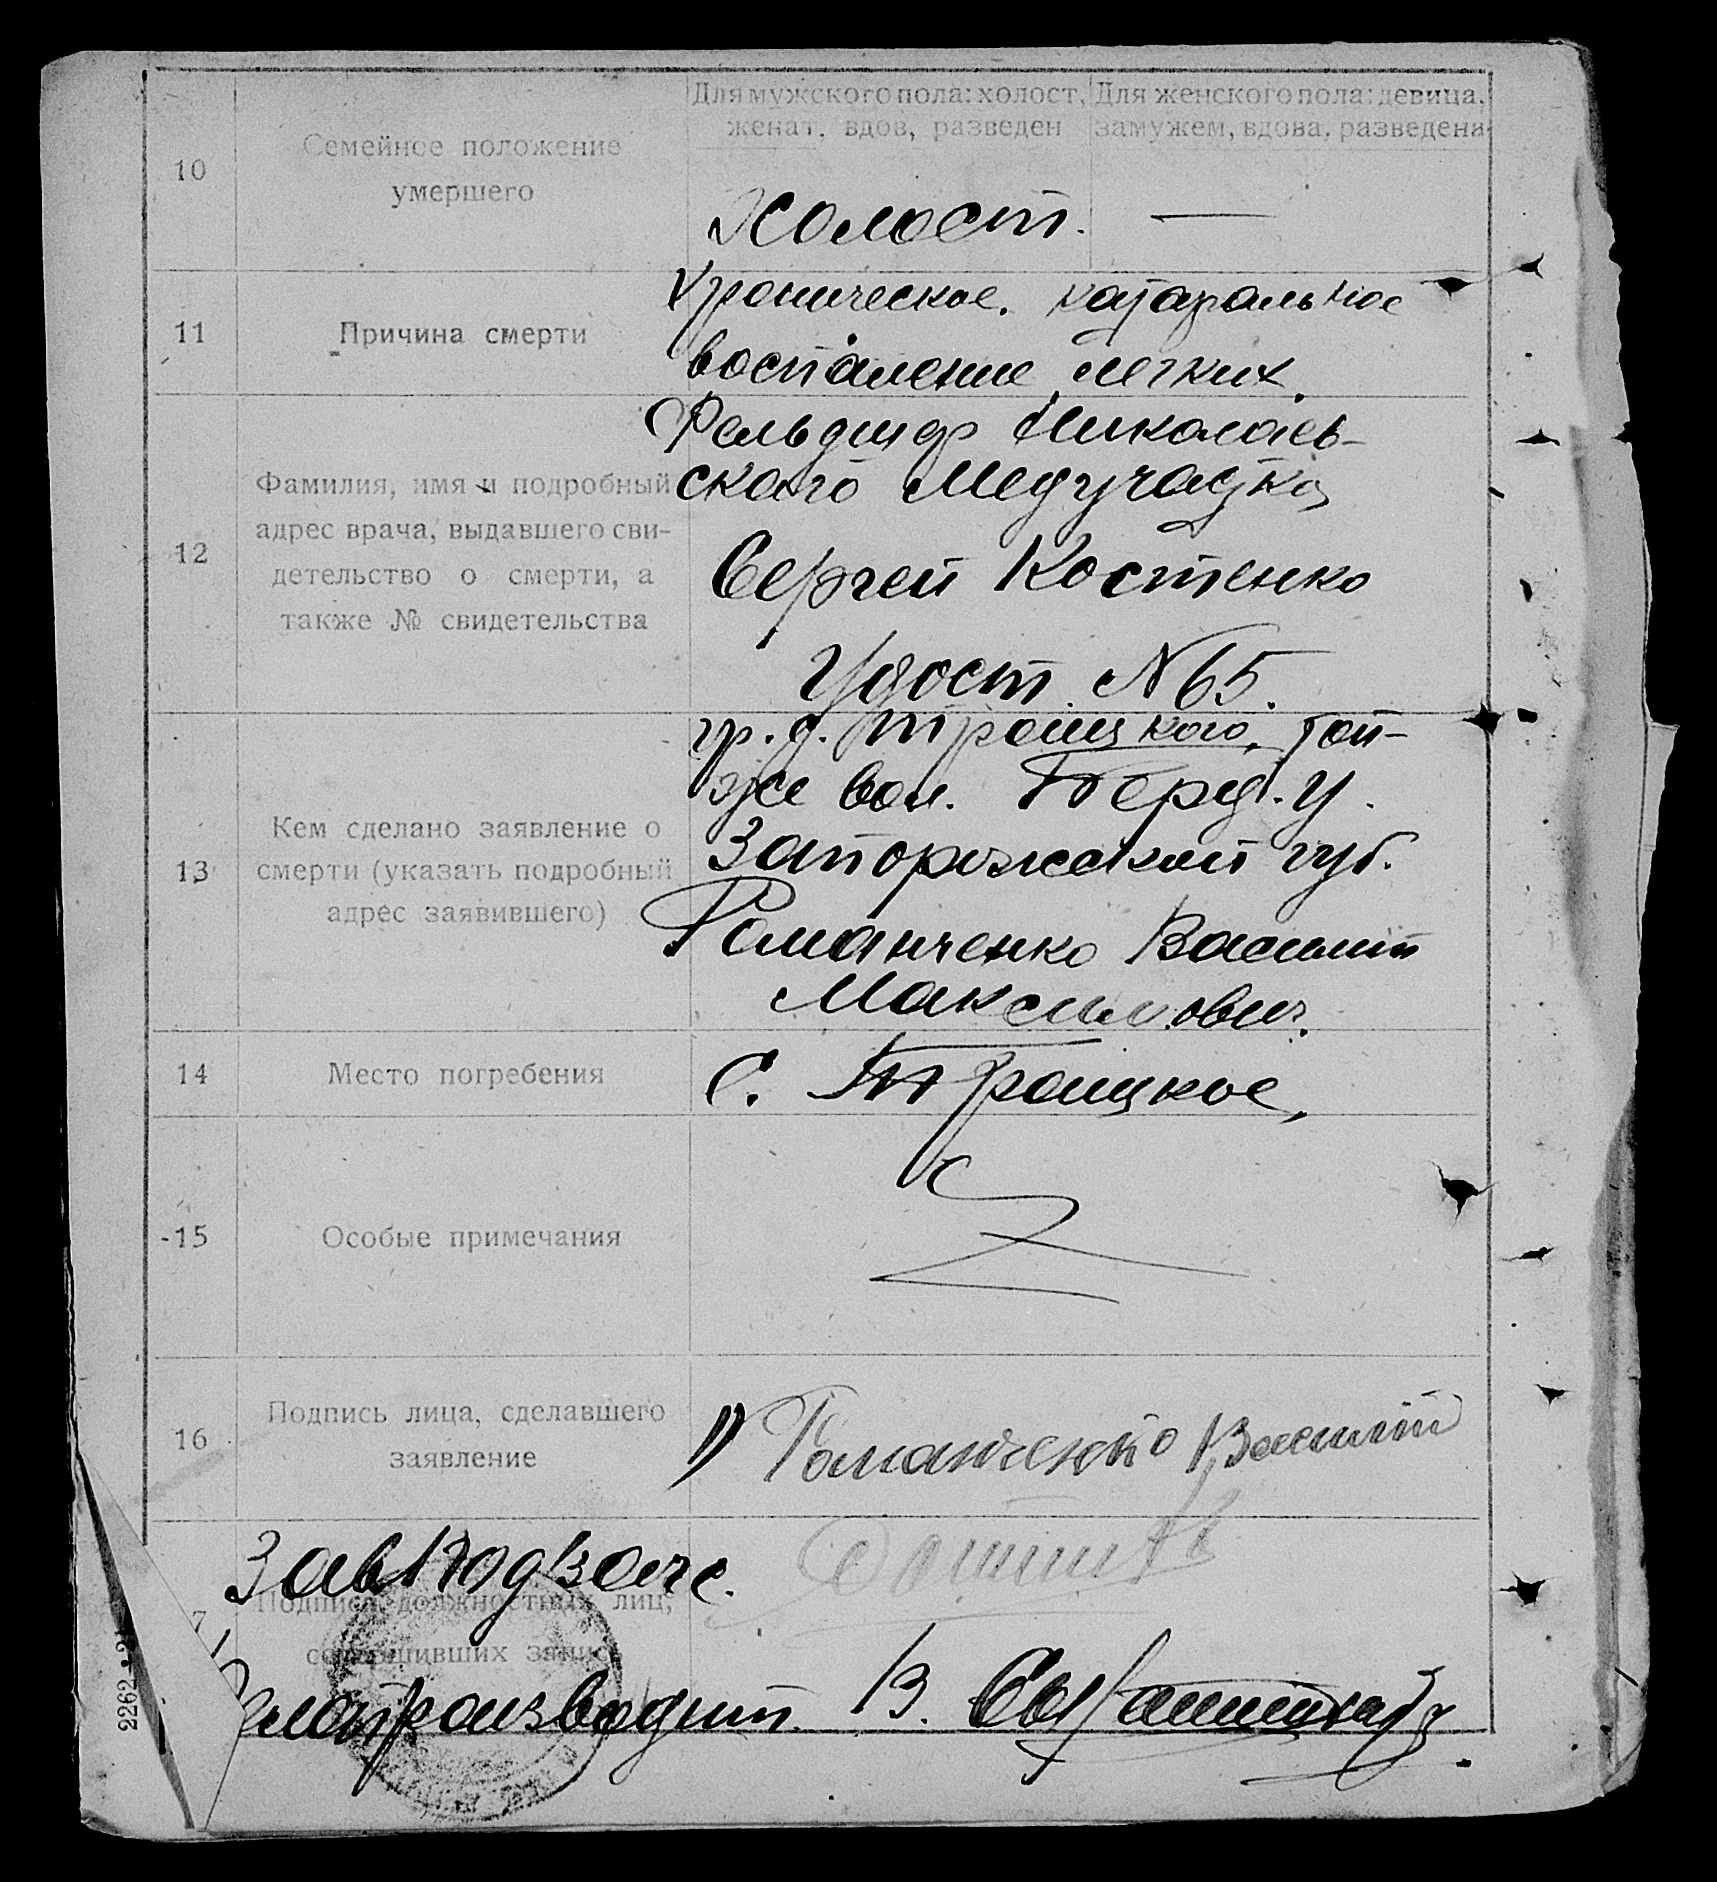 Для мужского пола: холост,
женат, вдов, разведен
Для женского пола: девица,
замужем, вдова, разведена
10
Семейное положение
умершего
Холост. —
11
Причина смерти
Хроническое. катаральное
воспаление легких.
12
Фамилия, имя и подробный
адрес врача, выдавшего сви-
детельство о смерти, а
также № свидетельства
Фельдшер Николаев-
ского Медучастка
Сергей Костенко
Удост. N 65.
13
Кем сделано заявление о
смерти (указать подробный
адрес заявившего)
гр. с. Троицкого, той-
же вол. Берд. у.
Запорожской губ.
Романченко Василий
Максимович.
14
Место погребения
с. Троицкое,
15
Особые примечания
16
Подпись лица, сделавшего
заявление
1) Романченко Василий
ЗавПодзагс.
7
Подписи должностных лиц,
совершивших запись
Делопроизводит. В.
2262